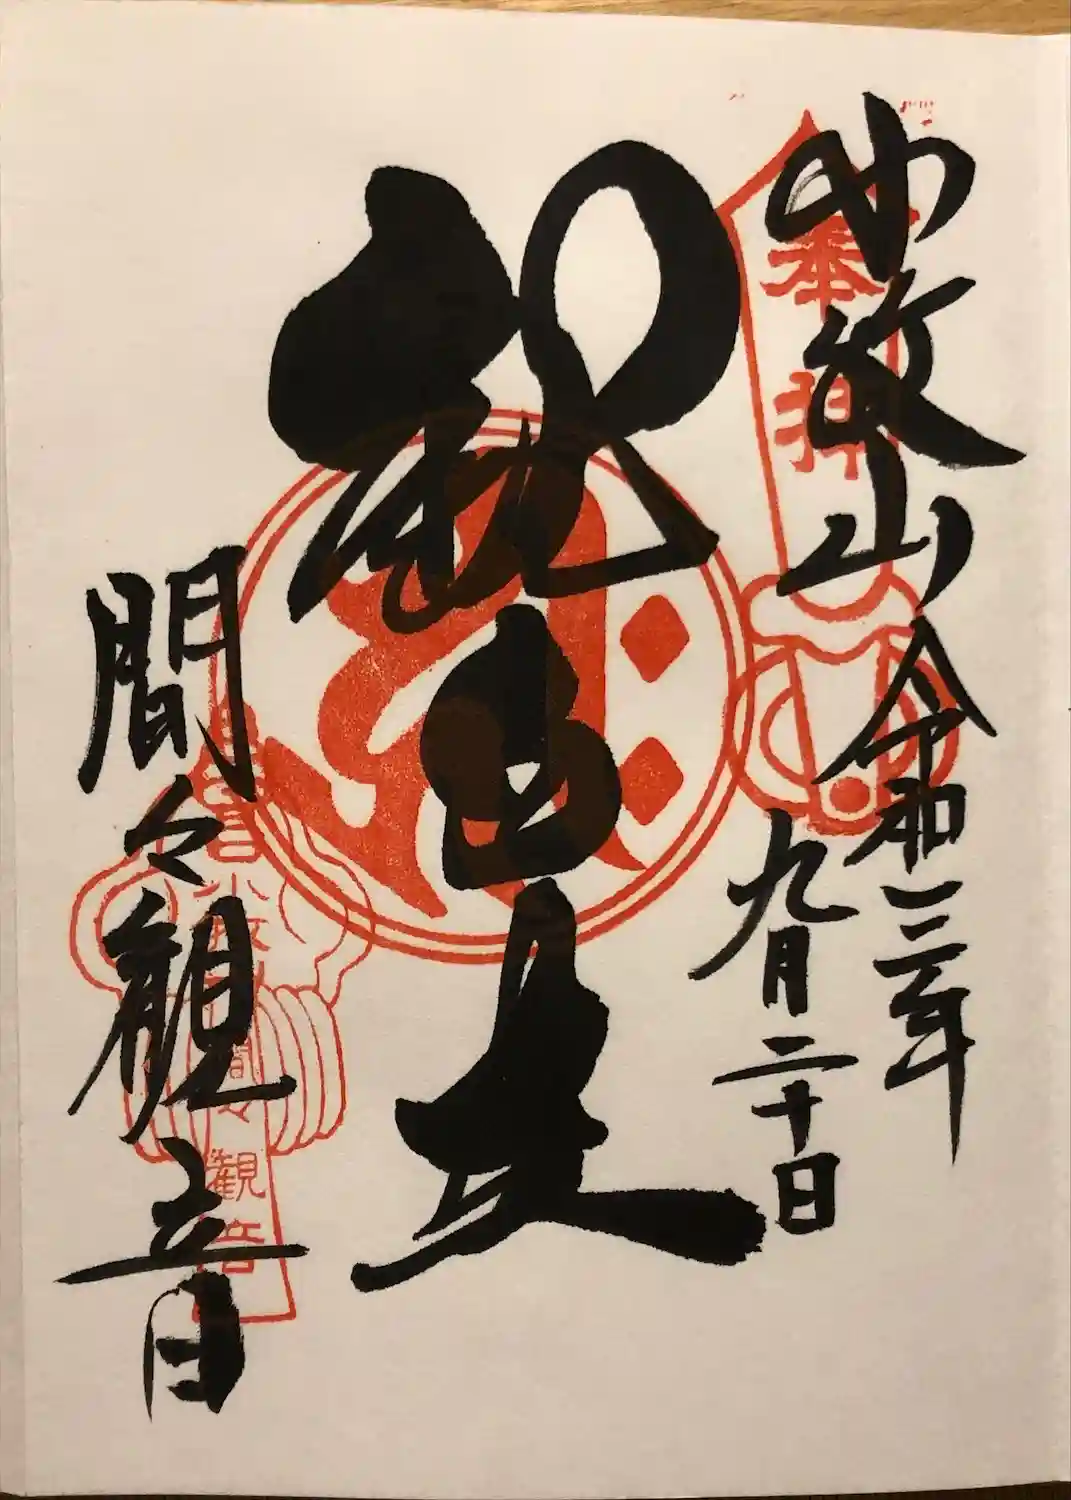 奉拝
小牧山 令和三年
九月二十日
観自在
間々観音
間々観音